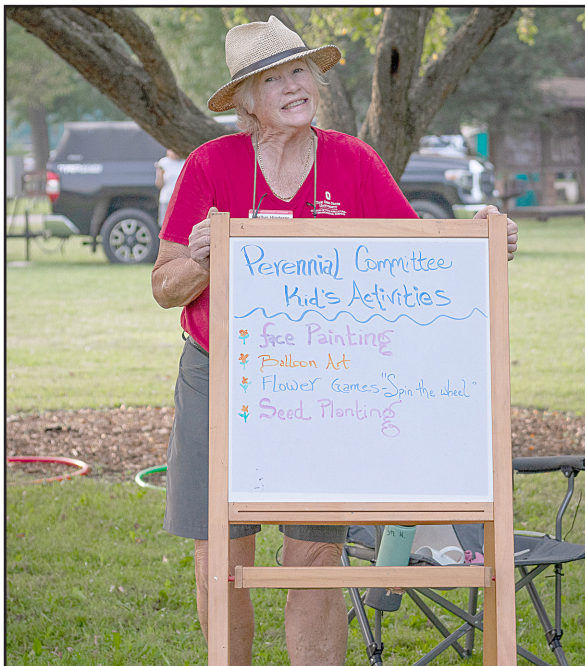 Perennial Committee
Kid's Activities
face Painting
Balloon Art
Flower Games-"Spin the wheel"
Seed Planting